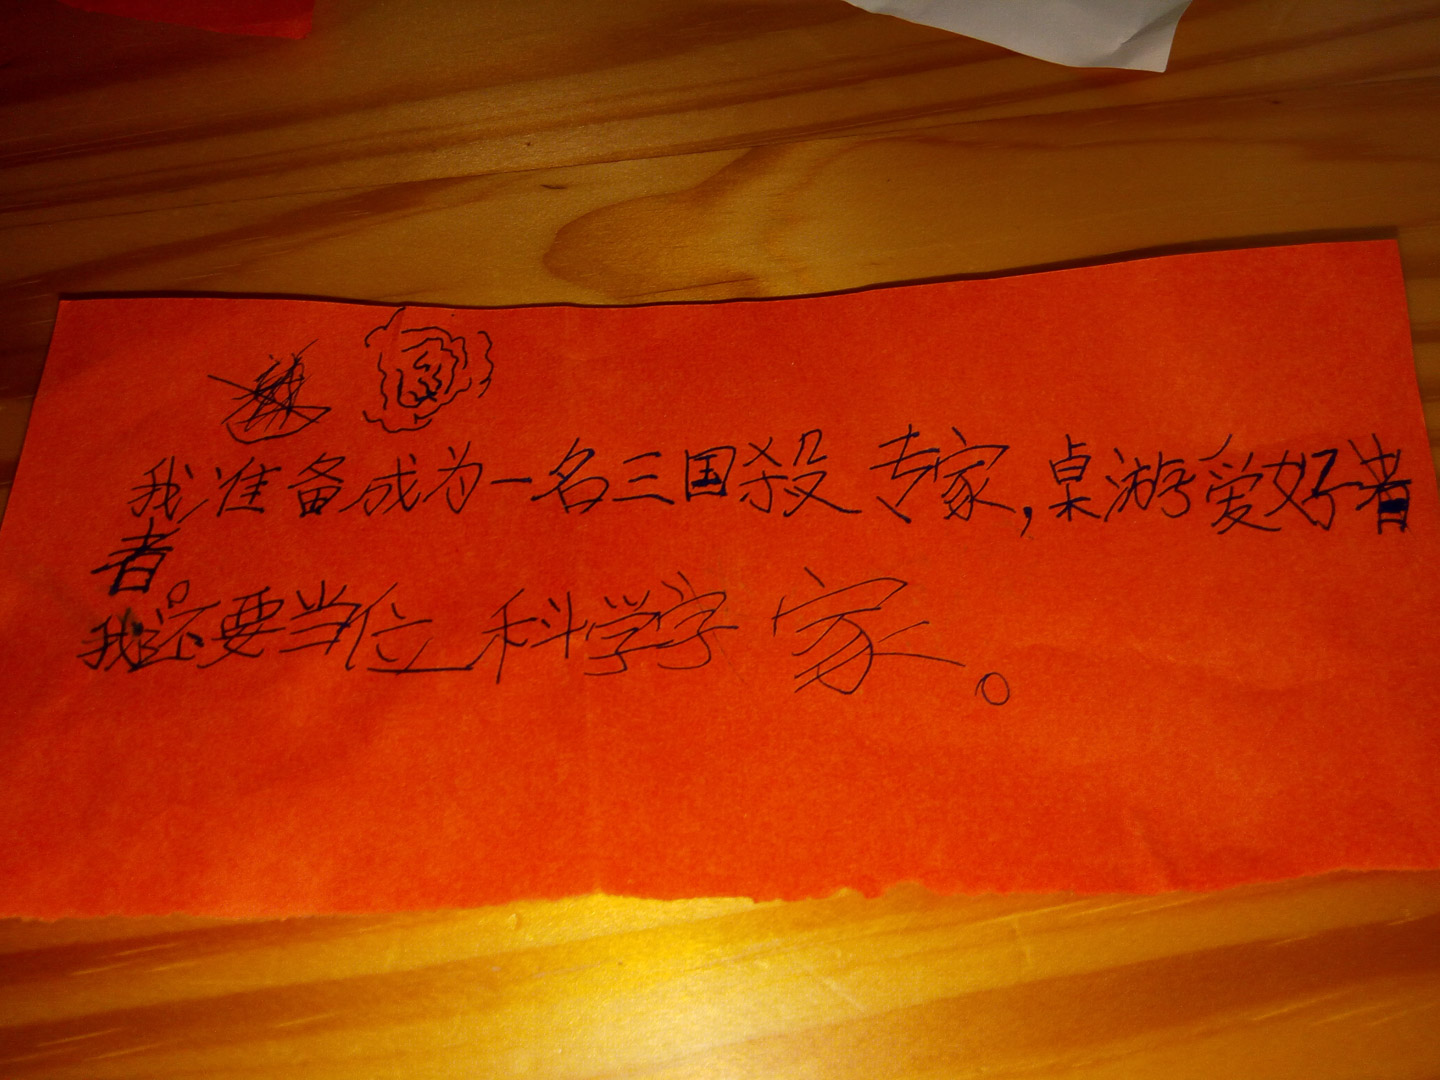 我准备成为一名三国杀专家，桌游爱好者
者。
我还要当位科学学家。